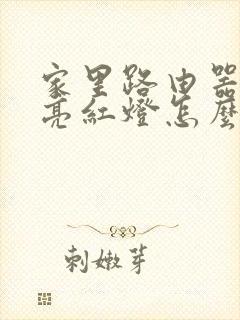 家里路由器
亮紅燈怎麼
刺嫩芽